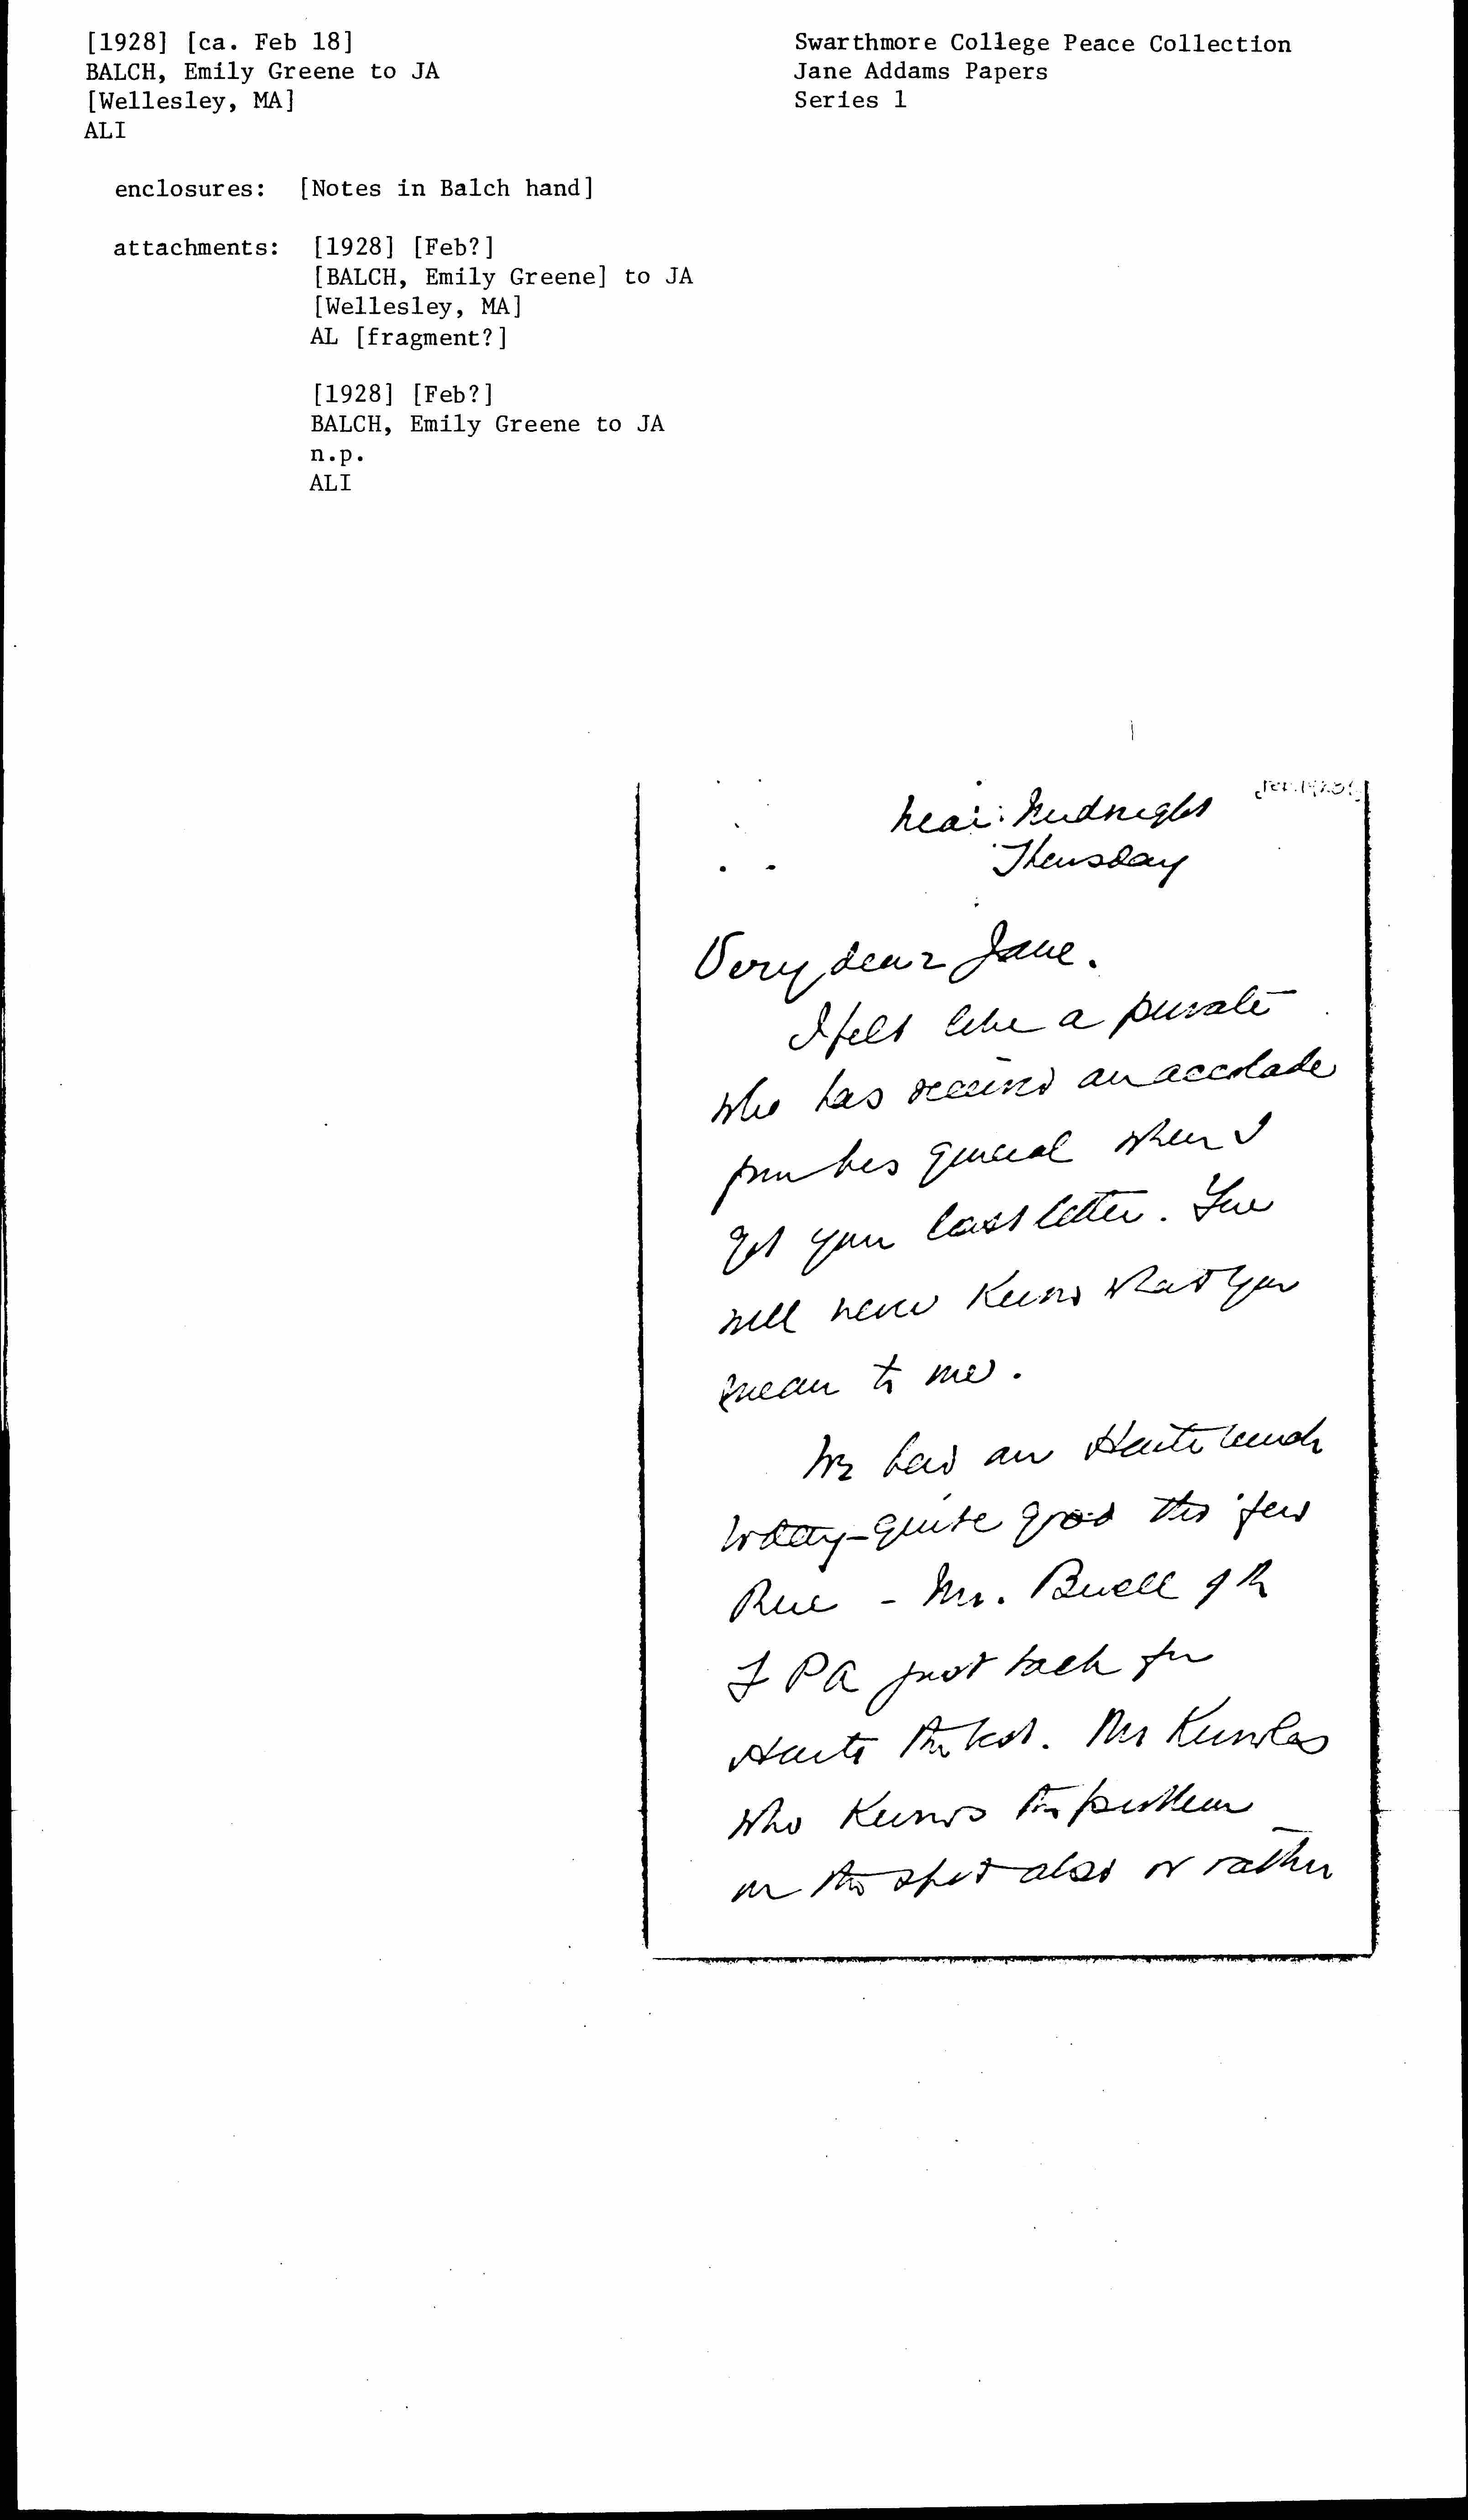 [1928] [ca. Feb 18]
BALCH, Emily Greene to JA
[Wellesley, MA]
ALI
Swarthmore College Peace Collection
Jane Addams Papers
Series 1
enclosures: [Notes in Balch hand]
attachments: [1928] [Feb?]
[BALCH, Emily Greene] to JA
[Wellesley, MA]
AL [fragment?]
[1928] [Feb?]
BALCH, Emily Greene to JA
n.p.
ALI
near midnight
Thursday
Very dear Jane.
I felt like a private
who has received an accolade
from his general when I
got your last letter. You
will never know what you
mean to me.
We had our Haiti lunch
today - quite good tho' few
- Mr. Buell of the
F P A just back from
Haiti the best. Mr Knowles
who knows the problem
on the spot also or rather